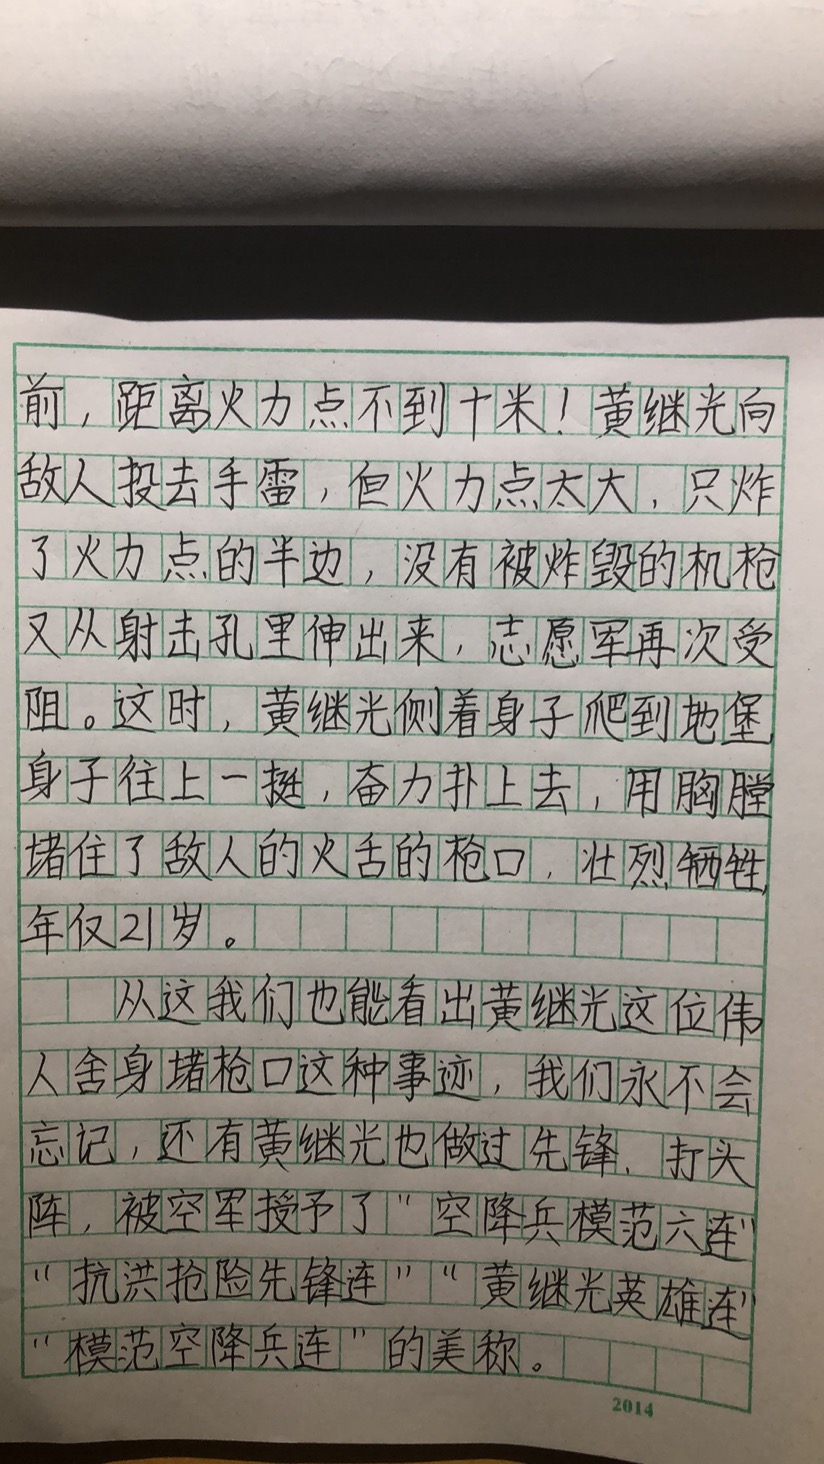 前，距离火力点不到十米！黄继光向
敌人投去手雷，但火力点太大，只炸
了火力点的半边，没有被炸毁的机枪
又从射击孔里伸出来，志愿军再次受
阻。这时，黄继光侧着身子爬到地堡
身子往上一挺，奋力扑上去，用胸膛
堵住了敌人的火舌的枪口，壮烈牺牲，
年仅21岁。
从这我们也能看出黄继光这位伟
人舍身堵枪口这种事迹，我们永不会
忘记，还有黄继光也做过先锋、打头
阵，被空军授予了“空降兵模范六连”
“抗洪抢险先锋连”“黄继光英雄连”
“模范空降兵连”的美称。
2014